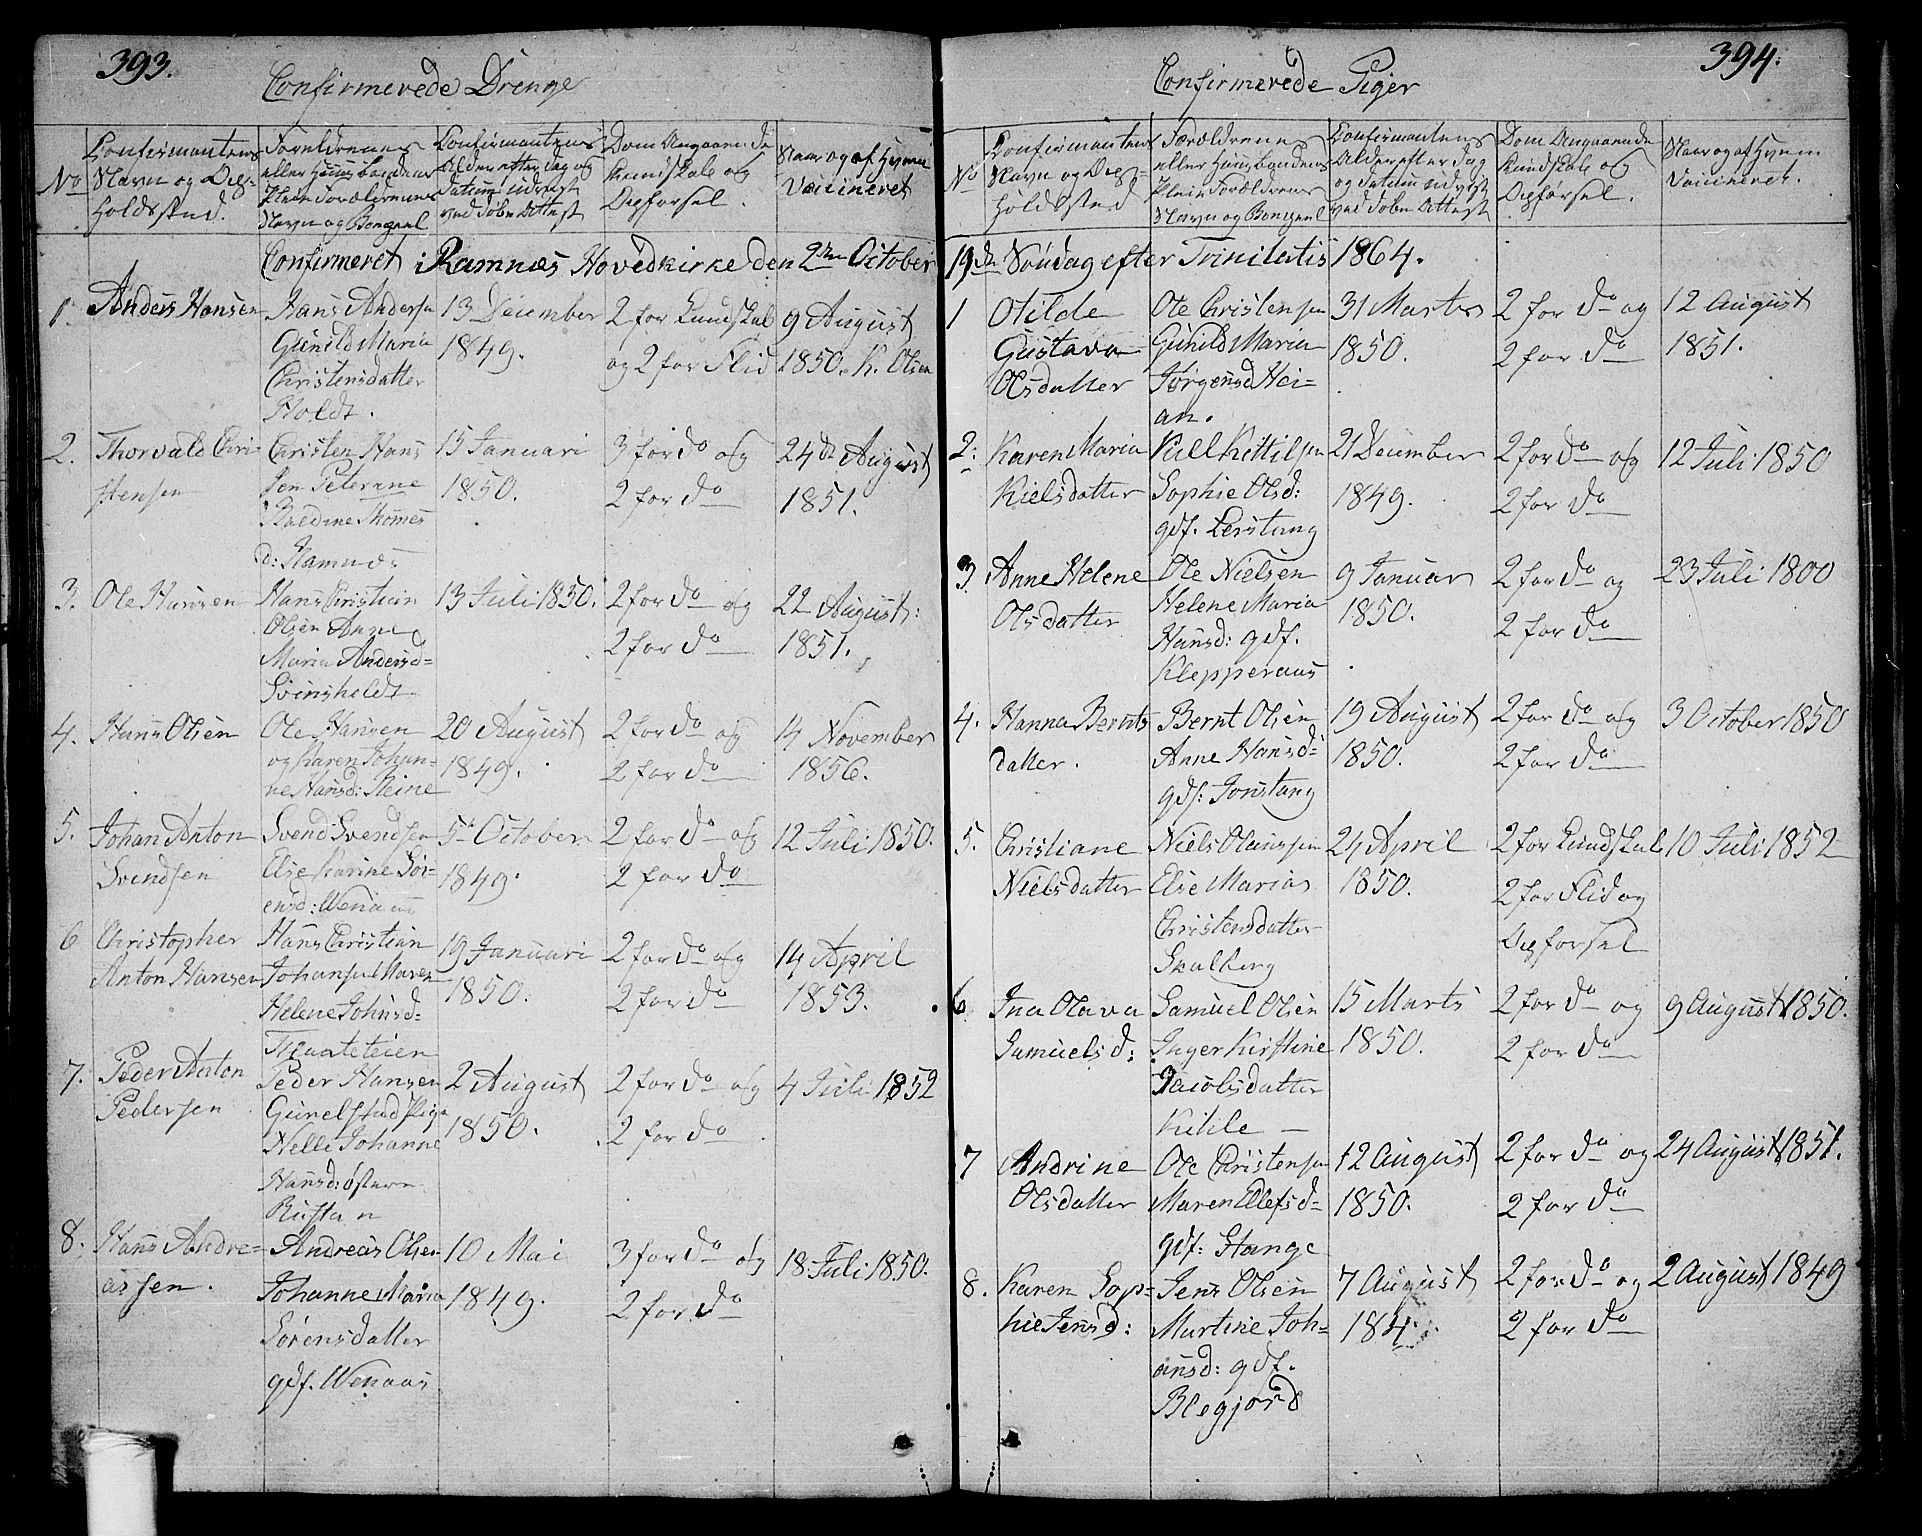 393.
Confirmerede Drenge
No
Confirmantens
Navn og Op:
holdssted.
Forældrenes
eller Huusbondens
Pleie Forældrenes
Navn og Bopæl
Confirmantens
Alder efter dag og
Datum udvist
ved Døbe Attest
Dom Angaaende
Kundskab og
Opførsel.
Naar og af Hvem
Vaccineret
Confirmeret i Ramnæs Hovedkirke den 2den October
1.
Anders Hansen
Hans Andersen
Gunild Maria
Christensdatter
Holdt.
13 December
1849.
2 for Kundskab
og 2 for Flid
9 August
1850. K. Olsen
2.
Thorvald Chri
stensen
Christen Hans
sen Peterane
Baldine Thomes
d: Ramnæs
15 Januari
1850.
3 for do og
2 for do
24de August
1851.
3.
Ole Hansen
Hans Christian
Olsen Anne
Maria Andersd=
Svinsholdt
13 Juli 1850.
2 for do og
2 for do
22 August:
1851.
4.
Hans Olsen
Ole Hansen
og Karen Johan=
ne Hansd: Reine
20 August
1849.
2 for do og
2 for do
14 November
1856.
5.
Johan Anton
Svendsen
Svend Svendsen
Else Karine Sør=
ensd: Wenaas
5te October
1849.
2 for do og
2 for do
12 Juli 1850.
6
Christopher
Anton Hansen
Hans Christian
Johansen Maren
Helene Johnsd=
19 Januari
1850.
2 for do og
2 for do
14 April
1853.
7.
Peder Anton
Pedersen
Peder Hansen
Gunelstad Pige
Nelli Johanne
Hansd: østern
Rustan
2 August
1850.
2 for do og
2 for do
4 Juli 1852
8.
Hans Andre=
assen.
Andreas Olsen
Johanne Maria
Sørensdatter
gdf. Wenaas
10 Mai
1849.
3 for do og
2 for do
18 Juli 1850.
394.
Confirmerede Piger
No
Confirmantens
Navn og Op=
holdssted
Forældrene
eller Huusbondens
Pleie Forældrenes
Navn og Bopæel
Confirmantens
Alder efter dag
og datum udvist
ved døbe Attest
Dom Angaaende
Kundskab og
Opførsel.
Naar og af Hvem
Vaccineret.
19de Søndag efter Trinitatis 1864.
1
Otilde
Gustava
Olsdatter
Ole Christensen
Gunild Maria
Jørgensd Hei=
an.
31 Marts
1850.
2 for do og
2 for do
12 August
1851.
2:
Karen Maria
Kielsdatter
Kiell Kittilsen
Sophie Olsd:
gdf. Lerstang
21 December
1849.
2 for do og
2 for do
12 Juli 1850
3
Anne Helene
Olsdatter
Ole Nielsen
Helene Maria
Hansd: gdf.
Klepperaas
9 Januar
1850.
2 for do og
2 for do
23 Juli 1800
4.
Hanna Bernts
datter.
Bernt Olsen
Anne Hansd=
gdf: Jonstang
19 August
1850.
2 for do og
2 for do
3 October 1850
5.
Christiane
Nielsdatter
Niels Olaussen
Else Marias
Christensdatter
Skalberg
24 April
1850.
2 for Kundskab
2 for Flid og
Opforsel
10 Juli 1852
6
Ina Olava
Samuelsd:
Samuel Olsen
Inger Kirstine
Jacobsdatter
Kihle
15 Marts
1850.
2 for do og
2 for do
9 August 1850.
7
Andrine
Olsdatter
Ole Christensen
Maren Ellefsd=
gdf: Stange
12 August
1850.
2 for do og
2 for do
24 August 1851.
8.
Karen Sop=
hie Jensd:
Jens Olsen
Martine Joh=
ansd: gdf.
Blegjord
7 August
184
2 for do og
2 for do
2 August 1849